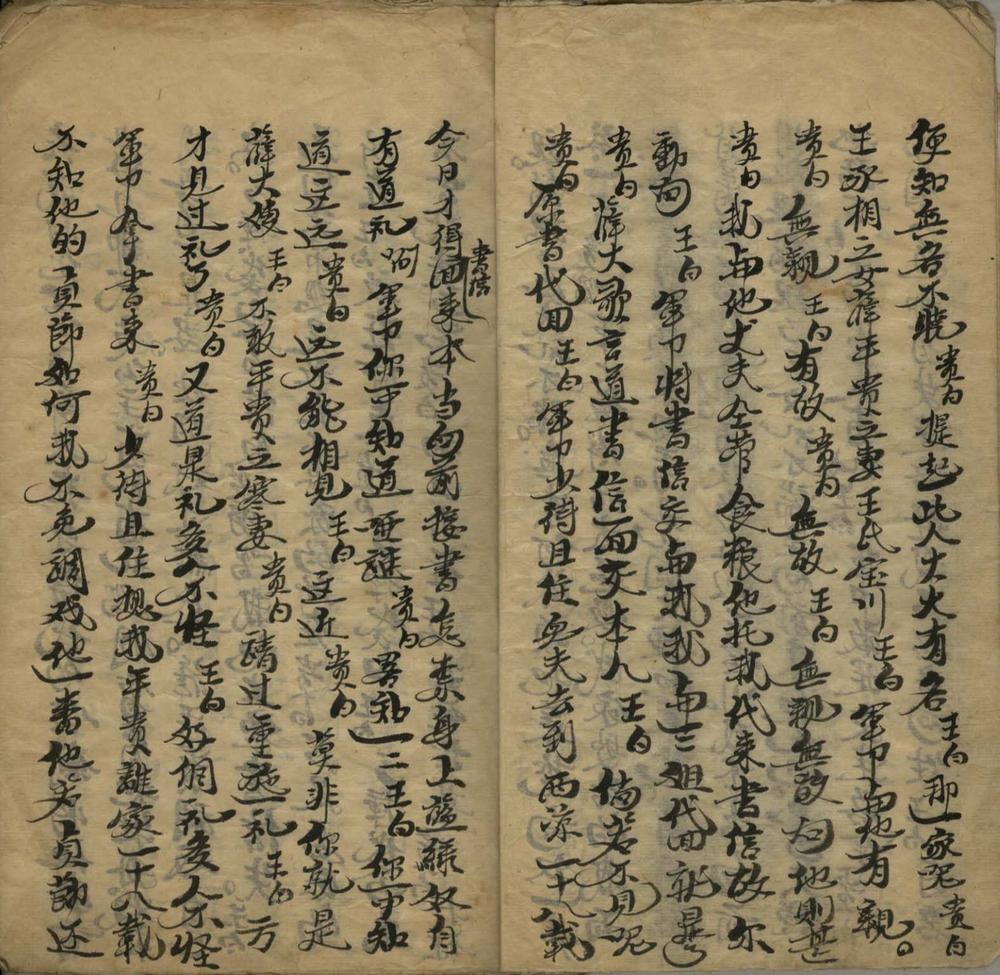 便知無名不曉貴白提起此人大大有名王白那一家呢貴白
王丞相之女薛平貴之妻王氏宝川王白軍巾与他有親
貴白無親王白有故貴白無故王白無親無故问他則甚
貴白我与他丈夫仝营食粮他托我代来書信故尔
動问王白軍巾将書信交与我我与三姐代回就是了
貴白薛大歌言道書信面交本人王白倘若不見呢
貴白原書代回王白軍巾少待且住兒夫去到西凉一十八載
今日才得書信回来本当向前接書怎柰身上蓝縷奴自
有道礼啊軍巾你可知道哑謎貴白吾知一二王白你可知
道这远貴白远不能相見王白这近貴白莫非你就是
薛大嫂王白不敢平貴之寒妻貴白請过重施一礼王白方
才見过礼了貴白又道是礼多人不怪王白好個礼多人不怪
軍巾拿書来貴白少待且住想我平貴離家一十八載
不知他的貞節如何我不免調戏他一番他若貞節还